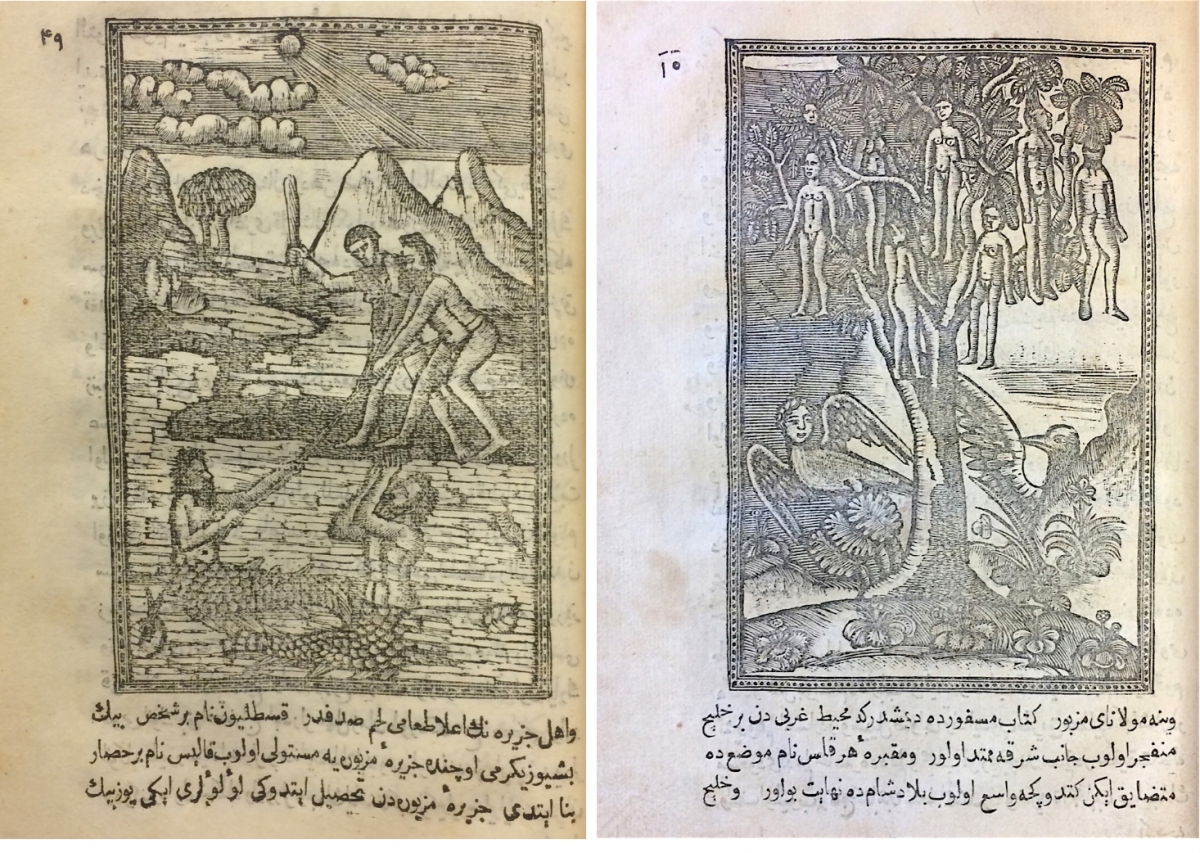 ۴۹
واهل جزیره نك اعلا طعامی لحم صدفدر قسطلیون نام بر شخص بیك
بشیوز یكرمی اوچنده جزیرهٔ مزبوره یه مستولی اولوب قالیس نام بر حصار
بنا ایتدی جزیرهٔ مزبوره دن تحصیل ایتدوكی لؤلؤلری ایكی یوز بیك
وینه مولانای مزبور كتاب مسفورده دیمشدر كه محیط غربی دن بر خلیج
منفجر اولوب جانب شرقه ممتد اولور ومقبرهٔ هرقلس نام موضع ده
متضایق ایكن كتدوكجه واسع اولوب بلاد شام ده نهایت بولور وخلیج